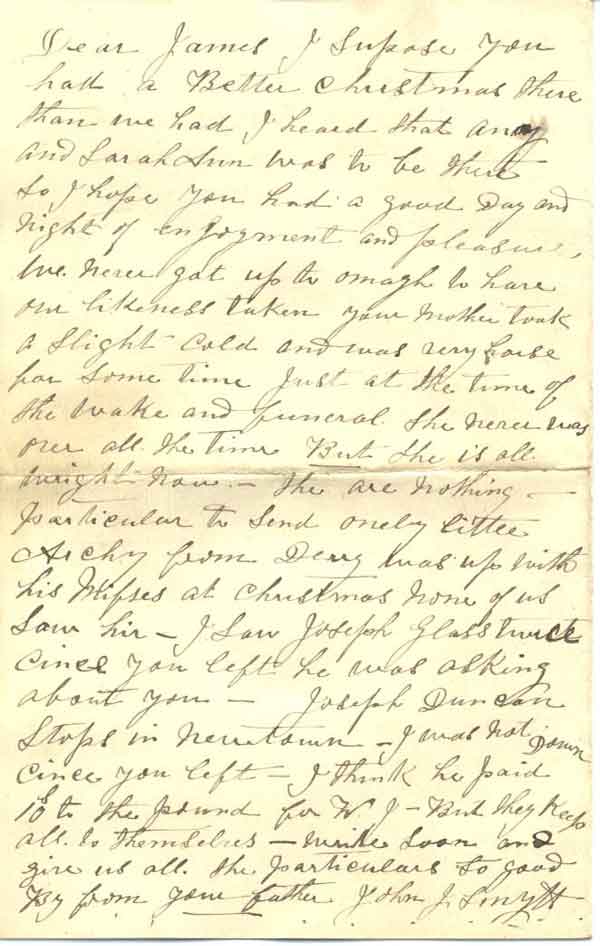 Dear James I Supose you
hatt a Better Christmas there
than we had I heard that any
and Sarah Ann was to be there
so I hope you had a good Day and
Night of enjoyment and pleasure,
We never got up to omagh to have
our likeness taken your Mother took
a slight cold and was very hoise
for some time Just at the time of
the wake and funeral she never was
over all the time But she is all
wright now. - the are Nothing -
particular to send onely littee
Archy from Derry was up with
his Misses at Christmas None of us
Saw hir - I Saw Joseph Glass twice
cince you left he was asking
about you - Joseph Duncan
Stops in Newtown - I was Not Down
cince you left - I think he paid
10s to the pound for W. J - But they Keep
all to themselves - write soon and
give us all the particulars so good
By from your father John J. Smyth